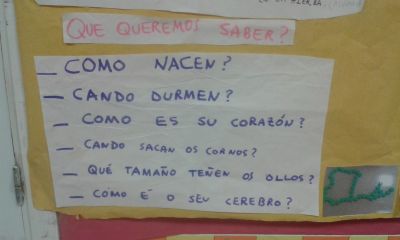 QUE QUEREMOS SABER?
_ COMO NACEN?
- CANDO DURMEN?
_ COMO ES SU CORAZÓN?
- CANDO SACAN OS CORNOS?
_ QUÉ TAMAÑO TEÑEN OS OLLOS?
- COMO É O SEU CEREBRO?